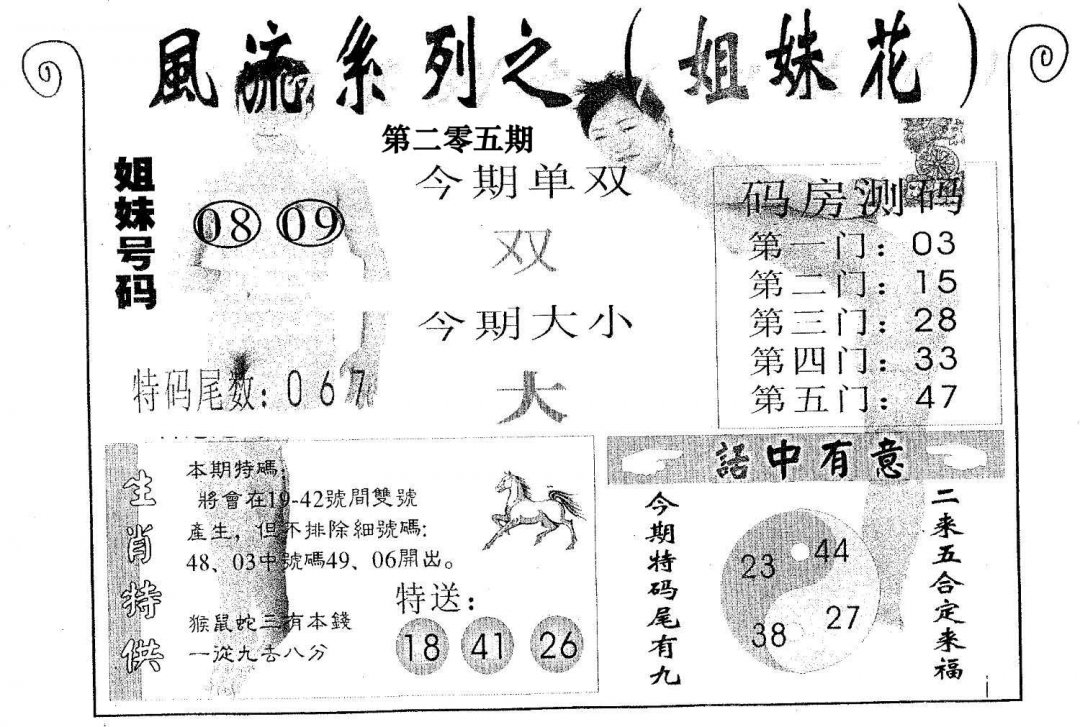 風流系列之（姐妹花）
第二零五期
姐妹号码
08 09
特码尾数：067
今期单双
双
今期大小
大
码房测码
第一门：03
第二门：15
第三门：28
第四门：33
第五门：47
生肖特供
本期特碼：
將會在19-42號間雙號
產生，但不排除細號碼：
48、03中號碼49、06開出。
猴鼠蛇三有本錢
一從九去八分
特送：
18 41 26
話中有意
今期特码尾有九
23 44
38 27
二来五合定来福